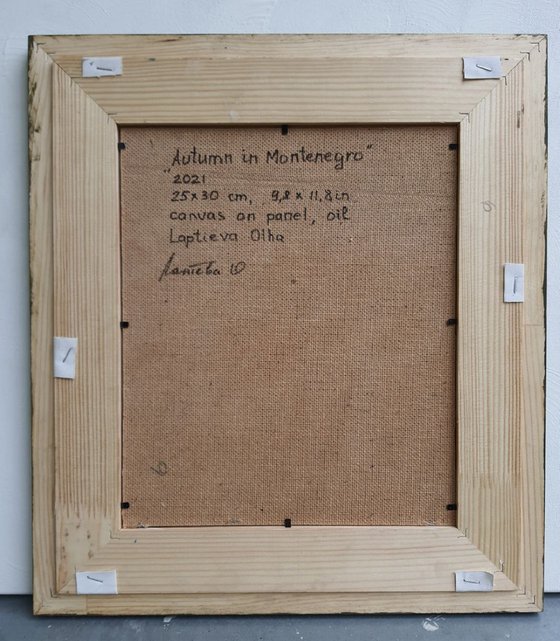 Autumn in Montenegro"
"2021
25x30 cm, 9,8 x 11,8 in
canvas on panel, oil
Laptieva Olha
Лаптєва Ю